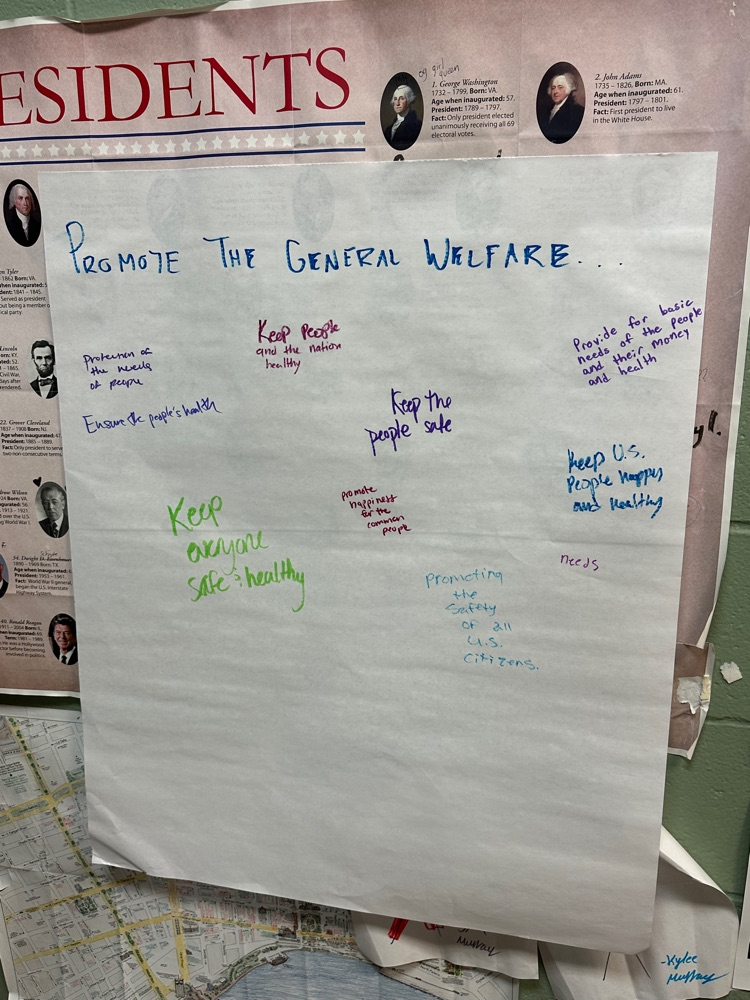 ESIDENTS
og girl
queen
1. George Washington
1732 – 1799, Born: VA.
Age when inaugurated: 57.
President: 1789 – 1797.
Fact: Only president elected
unanimously receiving all 69
electoral votes.
2. John Adams
1735 – 1826, Born: MA.
Age when inaugurated: 61.
President: 1797 – 1801.
Fact: First president to live
in the White House.
PROMOTE THE GENERAL WELFARE...
Keep People
and the nation
healthy
Provide for basic
needs of the people
and their money
and health
Protection of
the needs
of people
Ensure the people's health
Keep the
people safe
Keep U.S.
People happy
and healthy
Keep
everyone
safe & healthy
promote
happiness
for the
common
people
needs
promoting
the
safety
of all
U.S.
citizens.
Tyler
1862 Born: VA.
inaugurated: 5
dent: 1841 – 1845.
Served as president
out being a member o
ical party.
incoln
orn: KY.
rated: 52.
– 1865.
Civil War,
days after
rendered.
22. Grover Cleveland
1837 – 1908 Born: NJ.
Age when inaugurated: 47
President: 1885 – 1889.
Fact: Only president to serve
two non consecutive terms.
Wilson
24 Born: VA.
gurated: 56.
1913 – 1921.
d over the U.S.
ng World War I.
34. Dwight D. Eisenhower
1890 – 1969 Born: TX.
Age when inaugurated: 6
President: 1953 – 1961.
Fact: World War II general,
began the U.S. Interstate
Highway System.
40. Ronald Reagan
1911 – 2004 Born:
inaugurated: 69.
Term: 1981 – 1989.
He was a Hollywood
actor before becoming
involved in politics.
Murray
-Kylee
Murray